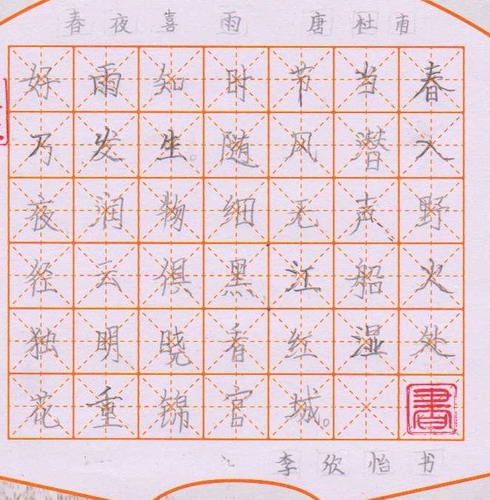 春夜喜雨 唐 杜甫
好雨知时节当春
乃发生。随风潜入
夜润物细无声野
径云俱黑江船火
独明晓香红湿处
花重锦官城。
書
李欣怡书